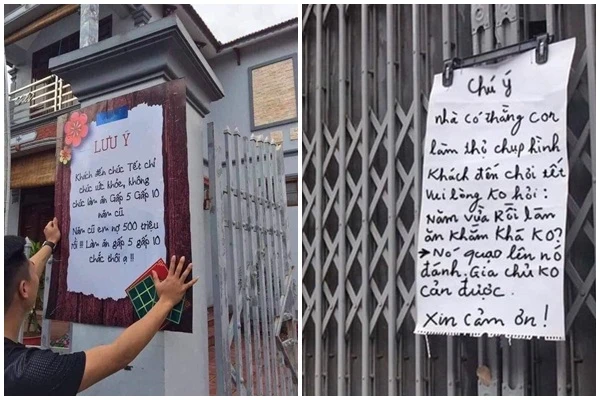 LƯU Ý
Khách đến chúc Tết chỉ
chúc sức khỏe, không
chúc làm ăn Gấp 5 Gấp 10
năm cũ.
Năm cũ em nợ 500 triệu
rồi !! Làm ăn gấp 5 gấp 10
chắc thôi ạ !!
Chú ý
nhà có thằng con
làm thợ chụp hình
Khách đến chơi tết
Vui lòng ko hỏi :
Năm vừa Rồi làm
ăn Khấm Khá Ko?
→ Nó quạo lên nó
đánh. Gia chủ Ko
cản được.
Xin cảm ơn !